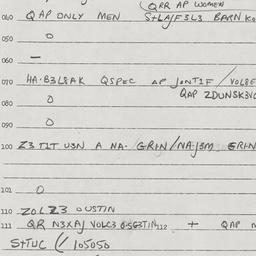 (QRR AP WOMEN
040 QAP ONLY MEN S+LAJF3L3 BARN
050 0
060 —
070 HA·B3L8AK QSPEC AP JONT1F / VOL8E
080 0 QAP ZDUNSK3VO
090 0
100 Z3 T1T U3N A NA· GRIN/NAJ3M GRIN
101 0
110 ZOLZ3 OUSTIN
111 QR N3XAJ VOLC3 112 + QAP
S+TUC (/ 105050